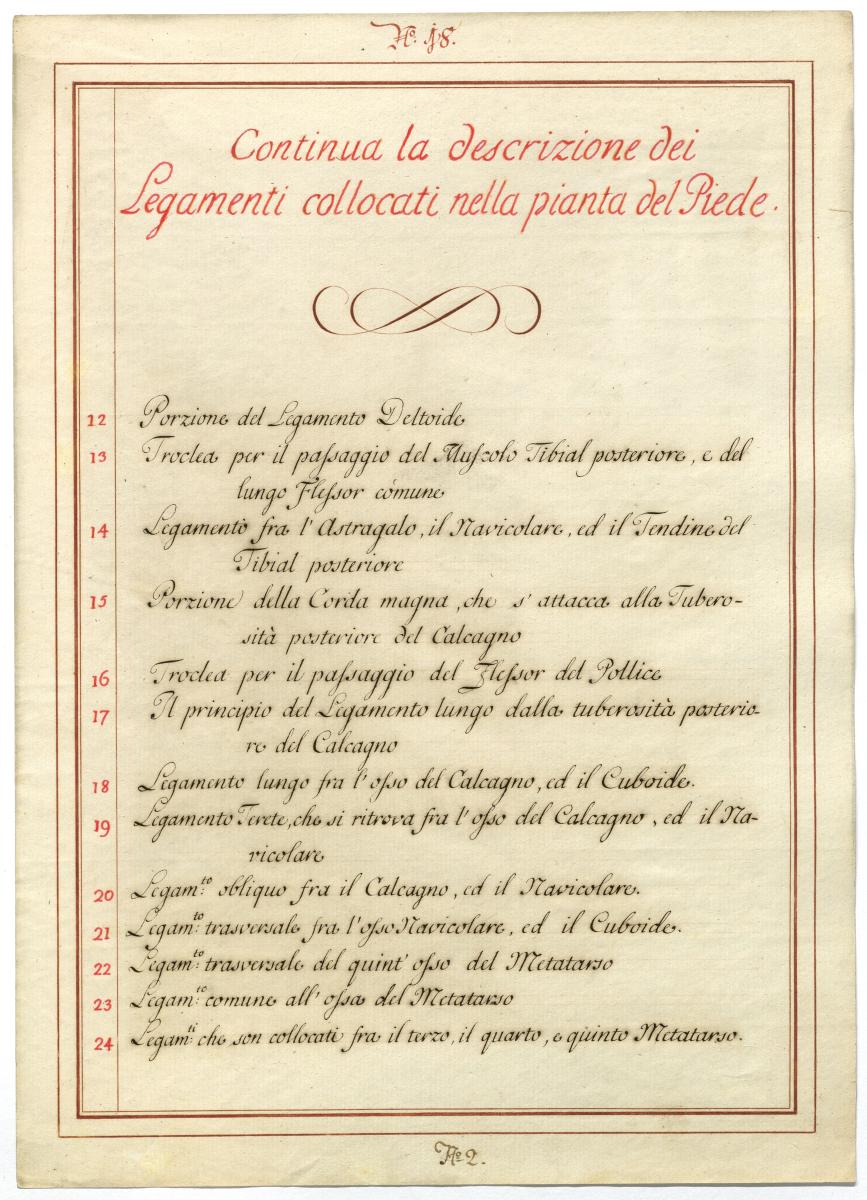 N.º 18.
Continua la descrizione dei
Legamenti collocati nella pianta del Piede.
12 Porzione del Legamento Deltoide
13 Troclea per il paſsaggio del Muſcolo Tibial posteriore, e del
lungo Fleſsor cómune
14 Legamento fra l'Astragalo, il Navicolare, ed il Tendine del
Tibial posteriore
15 Porzione della Corda magna, che s'attacca alla Tubero-
sità posteriore del Calcagno
16 Troclea per il paſsaggio del Fleſsor del Pollice
17 Il principio del Legamento lungo dalla tuberosità posterio-
re del Calcagno
18 Legamento lungo fra l'oſso del Calcagno, ed il Cuboide.
19 Legamento Terete, che si ritrova fra l'oſso del Calcagno, ed il Na-
vicolare
20 Legam:to obliquo fra il Calcagno, ed il Navicolare.
21 Legam:to trasversale fra l'oſso Navicolare, ed il Cuboide.
22 Legam:to trasversale del quint'oſso del Metatarso
23 Legam:to comune all'oſsa del Metatarso
24 Legam:ti che son collocati fra il terzo, il quarto, e quinto Metatarso.
Nº 2.